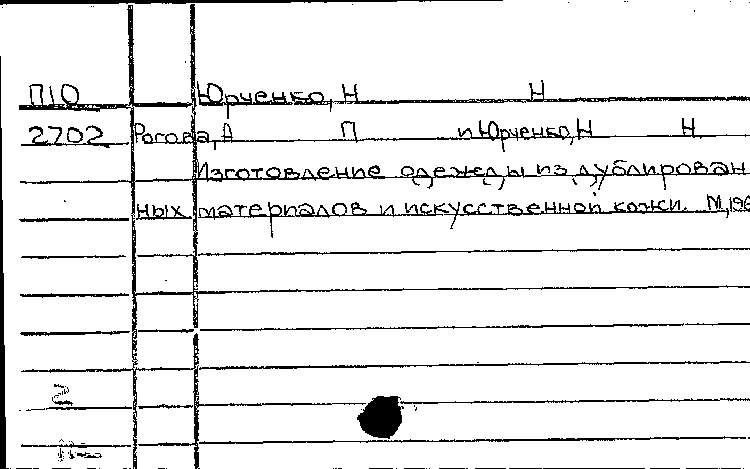 П10 Юрченко, Н Н
2702 Рогова, А П и Юрченко, Н Н
Изготовление одежды из дублирован
ных материалов и искусственной кожи. М, 196
2